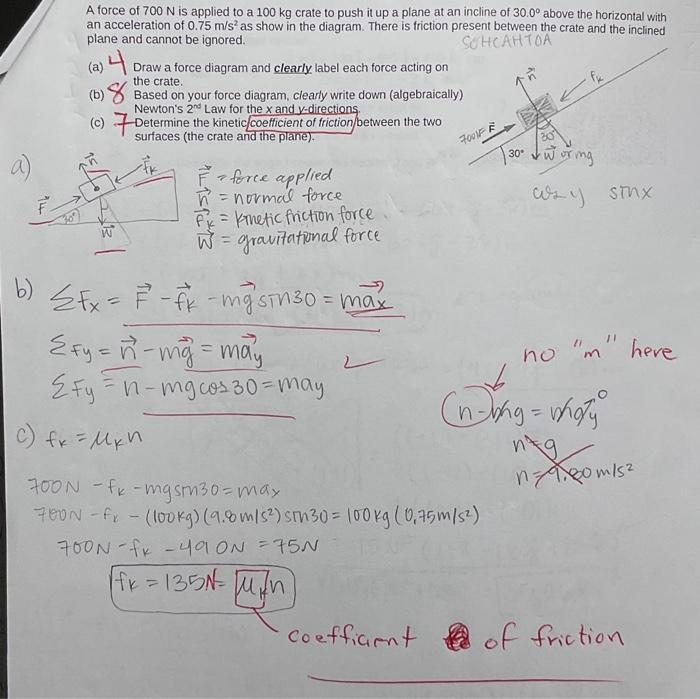 A force of 700 N is applied to a 100 kg crate to push it up a plane at an incline of 30.0° above the horizontal with
an acceleration of 0.75 m/s² as show in the diagram. There is friction present between the crate and the inclined
plane and cannot be ignored.
SOHCAHTOA
(a) 4 Draw a force diagram and clearly label each force acting on
the crate.
(b) 8 Based on your force diagram, clearly write down (algebraically)
Newton's 2nd Law for the x and y-directions.
(c) 7 Determine the kinetic coefficient of friction between the two
surfaces (the crate and the plane).
n fk
700N F 30°
30° W or mg
cos y sin x
a) n fk
F 30° W
F = force applied
n = normal force
Fk = kinetic friction force
W = gravitational force
b) ΣFx = F - fk - mg sin30 = max
ΣFy = n - mg = may
ΣFy = n - mg cos30 = may
no "m" here
n - mg = may 0
n = g
n = 9.80 m/s²
c) fk = μkn
700N - fk - mg sin30 = max
700N - fk - (100kg)(9.8 m/s²) sin30 = 100kg (0,75m/s²)
700N - fk - 490N = 75N
fk = 135N = μkn
coefficient of friction